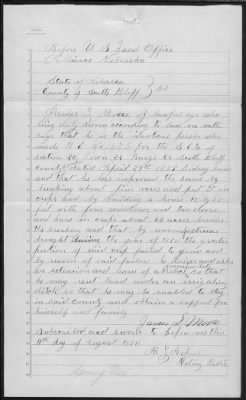 Before U S Land Office
Alliance Nebraska
State of Nebraska
County of Scotts Bluff } SS
James L Moore of lawful age who
being duly sworn according to law on oath
says that he is the identical person who
made H E No for the S E ¼ of
section 20 Town 22 Range Scotts Bluff
county dated April
and that he has improved the same by
breaking about five acres and put it in
crops and by building a house 12 by 20
feet with four windows and two doors
and has in crops about 25 acres besides
the breaking and that by unconquerous
drought during the year of 1890 the greater
portion of said crop failed to grow and
by reason of said failure he prays and asks
an extension and leave of absence so that
he may rent land under an irrigating
ditch so that he may be enabled to stay
in said county and obtain a support for
himself and family
James L Moore
Subscribed and sworn to before me this
day of August 1890
Notary Public